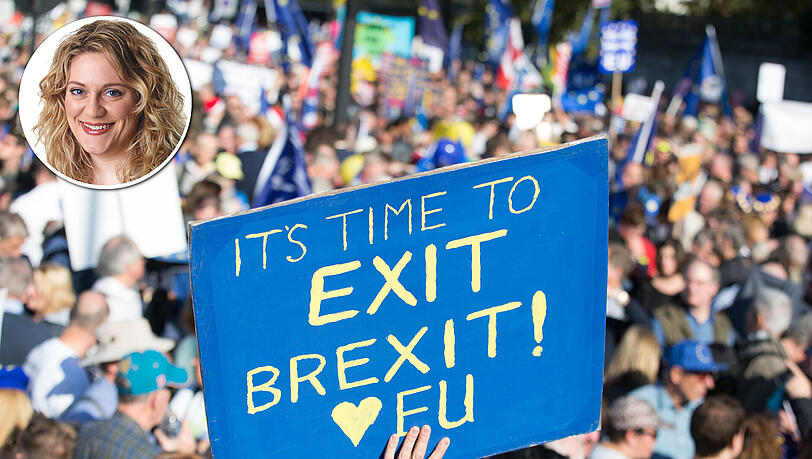 IT'S TIME TO
EXIT
BREXIT!
♥ EU